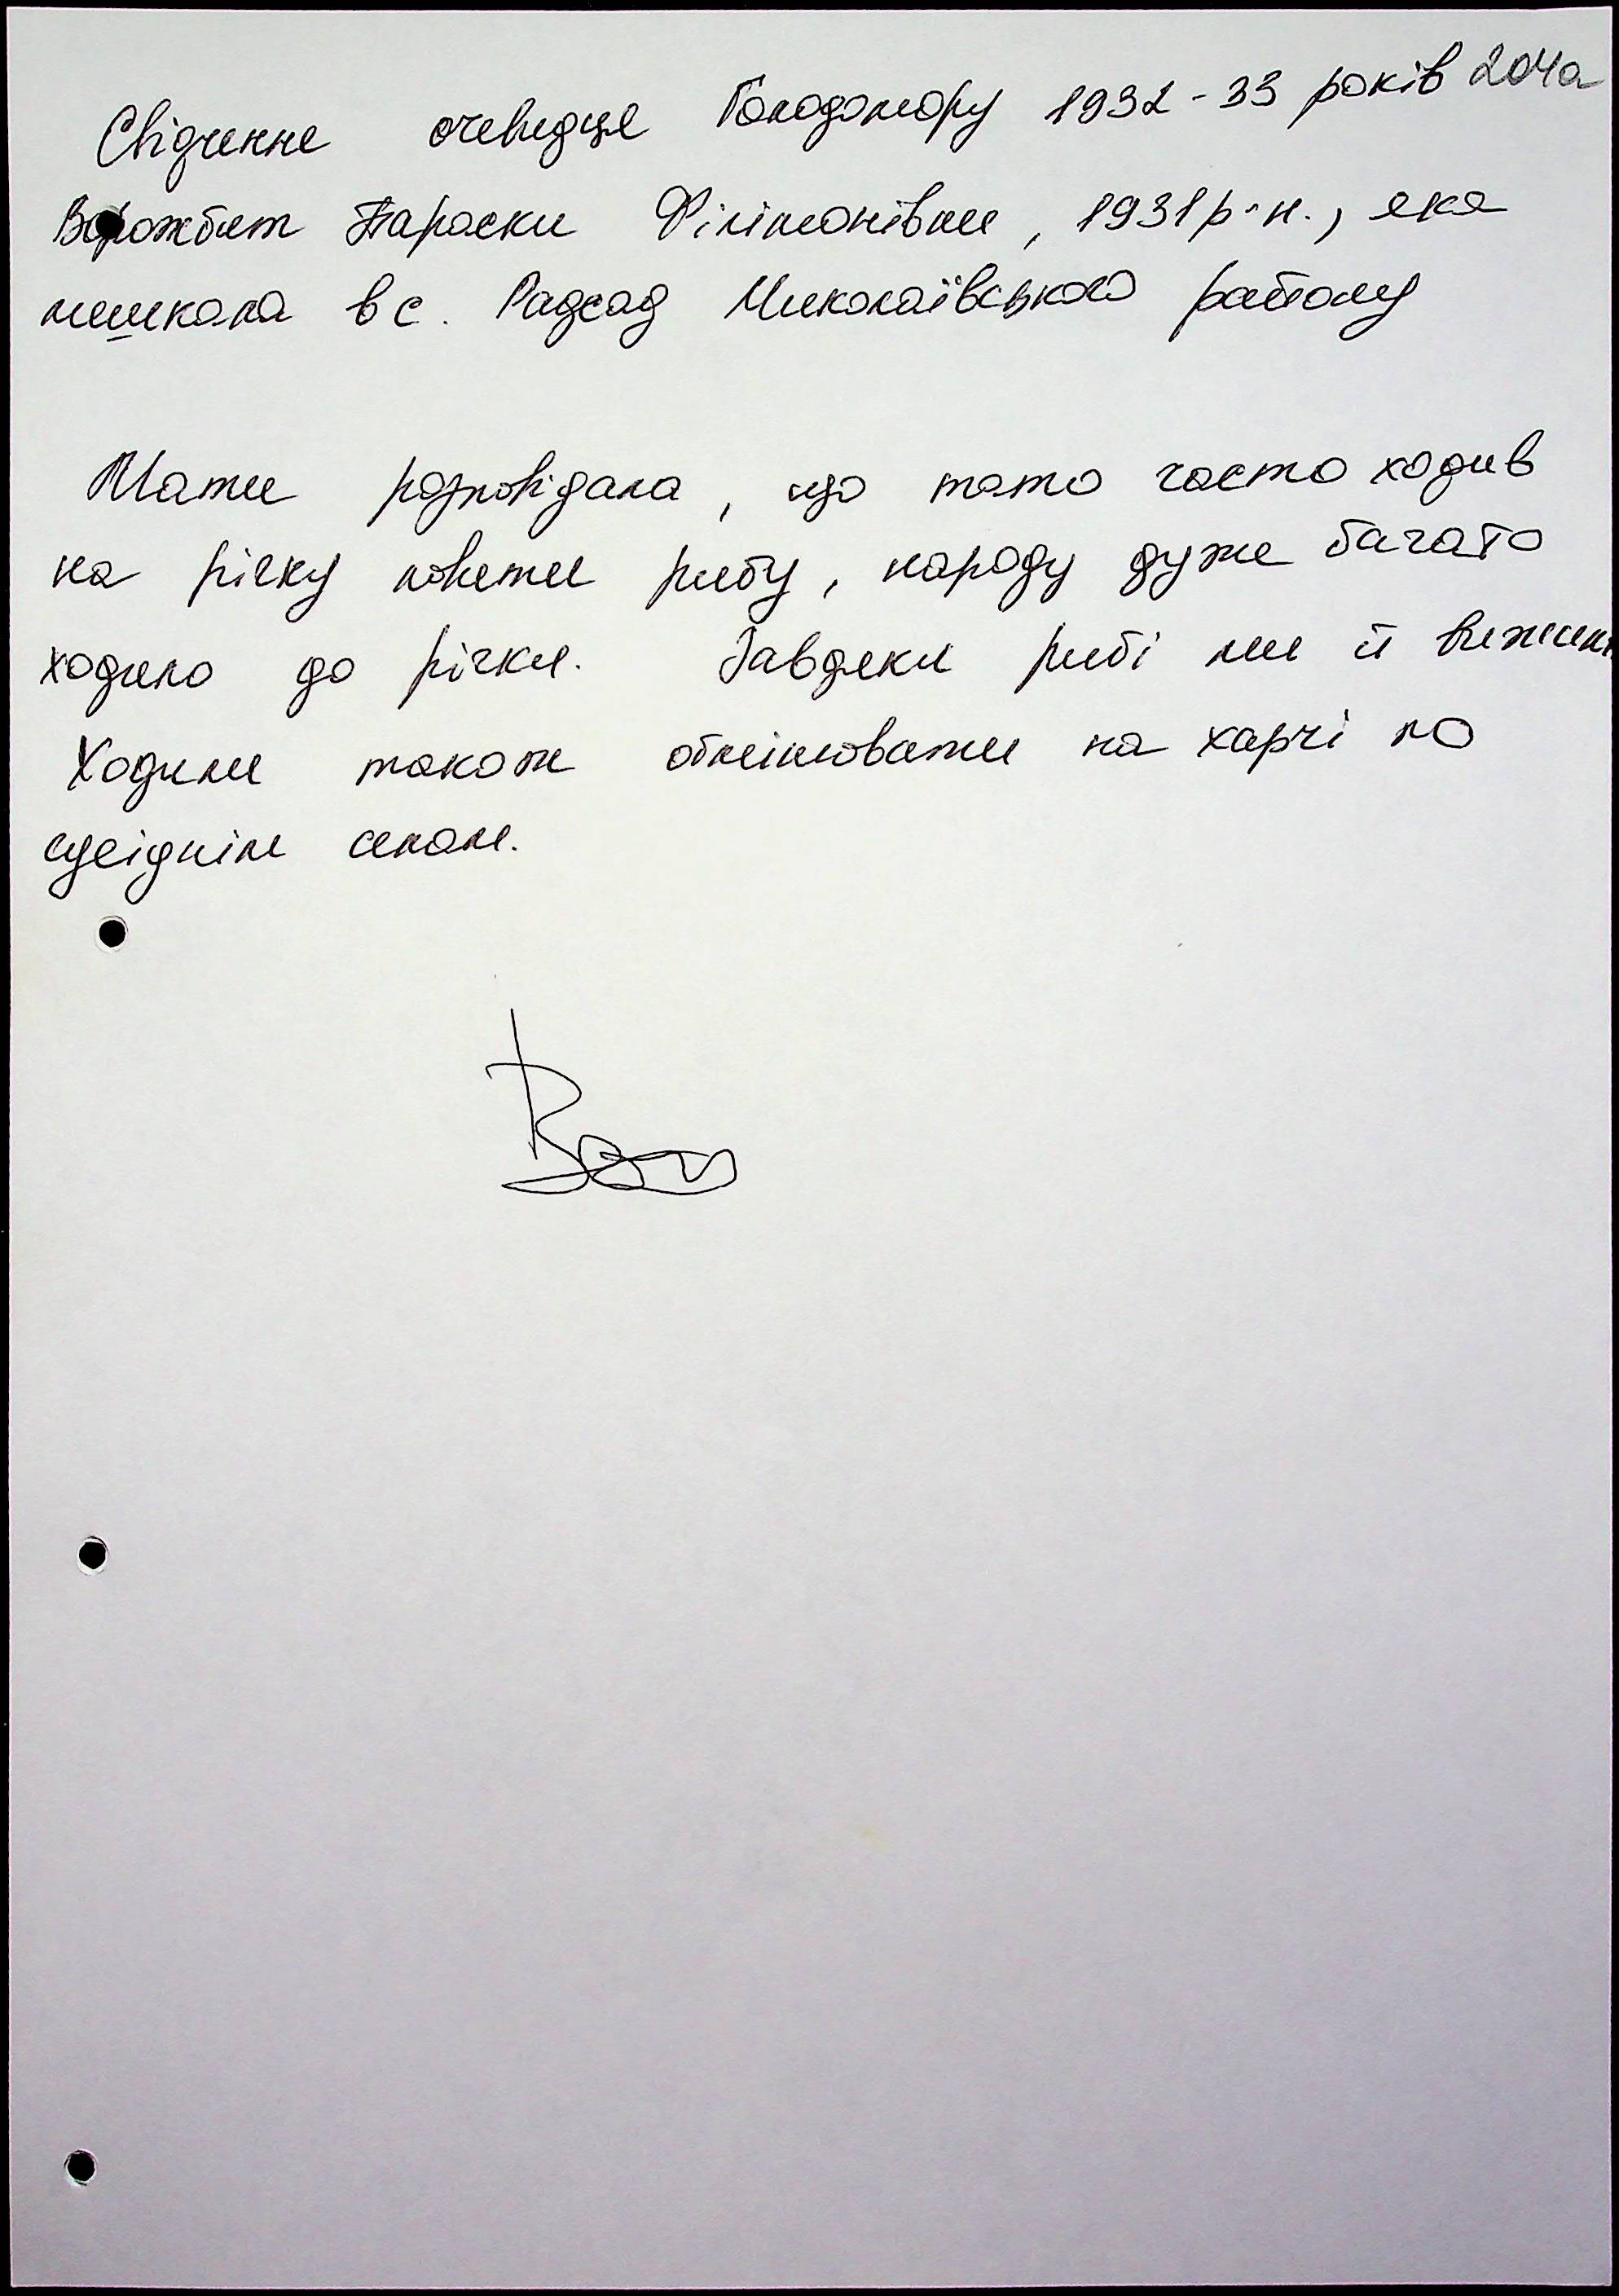 Свідчення очевидця Голодомору 1932-33 років 204а
Ворожбит Параски Філімонівни, 1931р.н., яка
мешкала в с. Радсад Миколаївського району
Мати розповідала, що тато часто ходив
на річку ловити рибу, народу дуже багато
ходило до річки. Завдяки рибі ми й вижили
Ходили також обмінювати на харчі по
сусіднім селам.